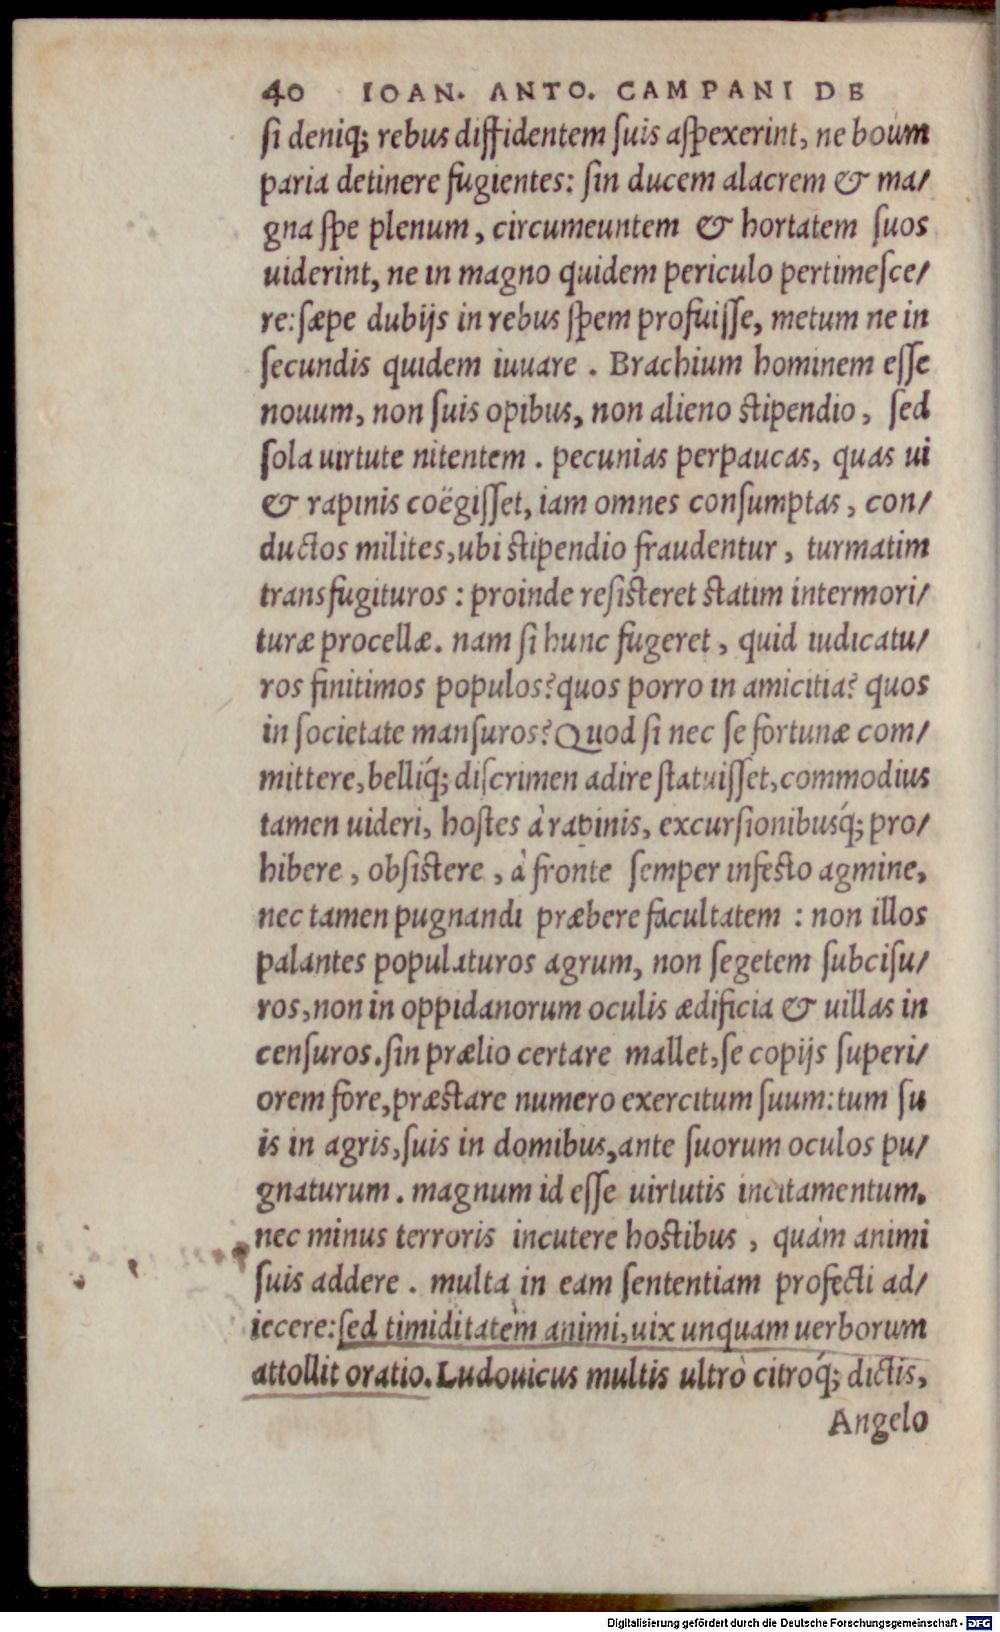 40 IOAN. ANTO. CAMPANI DE
ſi deniq; rebus diffidentem ſuis aſpexerint, ne boum
paria detinere fugientes: ſin ducem alacrem & ma/
gna ſpe plenum, circumeuntem & hortatem ſuos
uiderint, ne in magno quidem periculo pertimeſce/
re: ſæpe dubijs in rebus ſpem profuiſſe, metum ne in
ſecundis quidem iuuare . Brachium hominem eſſe
nouum, non ſuis opibus, non alieno ſtipendio, ſed
ſola uirtute nitentem . pecunias perpaucas, quas ui
& rapinis coëgiſſet, iam omnes conſumptas, con/
ductos milites, ubi ſtipendio fraudentur, turmatim
transfugituros : proinde reſiſteret ſtatim intermori/
turæ procellæ. nam ſi hunc fugeret, quid iudicatu/
ros finitimos populos? quos porro in amicitia? quos
in ſocietate manſuros? Quod ſi nec ſe fortunæ com/
mittere, belliq́; diſcrimen adire ſtatuiſſet, commodius
tamen uideri, hoſtes à rapinis, excurſionibusq́; pro/
hibere, obſiſtere, à fronte ſemper infeſto agmine,
nec tamen pugnandi præbere facultatem : non illos
palantes populaturos agrum, non ſegetem ſubciſu/
ros, non in oppidanorum oculis ædificia & uillas in
cenſuros. ſin prælio certare mallet, ſe copijs ſuperi/
orem fore, præſtare numero exercitum ſuum: tum ſu
is in agris, ſuis in domibus, ante ſuorum oculos pu/
gnaturum . magnum id eſſe uirtutis incitamentum.
nec minus terroris incutere hoſtibus, quàm animi
ſuis addere . multa in eam ſententiam profecti ad/
iecere: ſed timiditatem animi, uix unquam uerborum
attollit oratio. Ludouicus multis ultrò citroq́; dictis,
Angelo
Digitalisierung gefördert durch die Deutsche Forschungsgemeinschaft - DFG